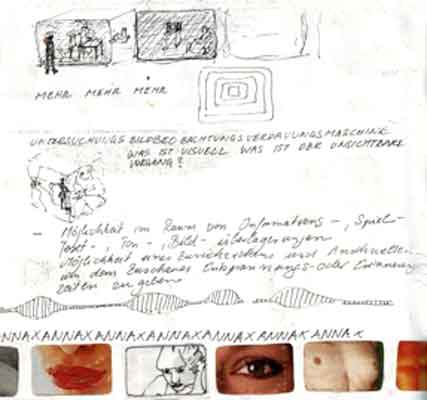 MEHR MEHR MEHR
UNTERSUCHUNGSBILDBEOBACHTUNGSVERDAUUNGSMASCHINE
WAS IST VISUELL WAS IST DER UNSICHTBARE
VORGANG?
– Möglichkeit im Raum von Informations-, Spiel-
Text-, Ton-, Bild- überlagerungen
Möglichkeit eines Zurückziehens und Anschwellen
um dem Zuschauer Entspannungs- oder
zeiten zu geben
NNAXANNAXANNAXANNAXANNAXANNAXANNAX